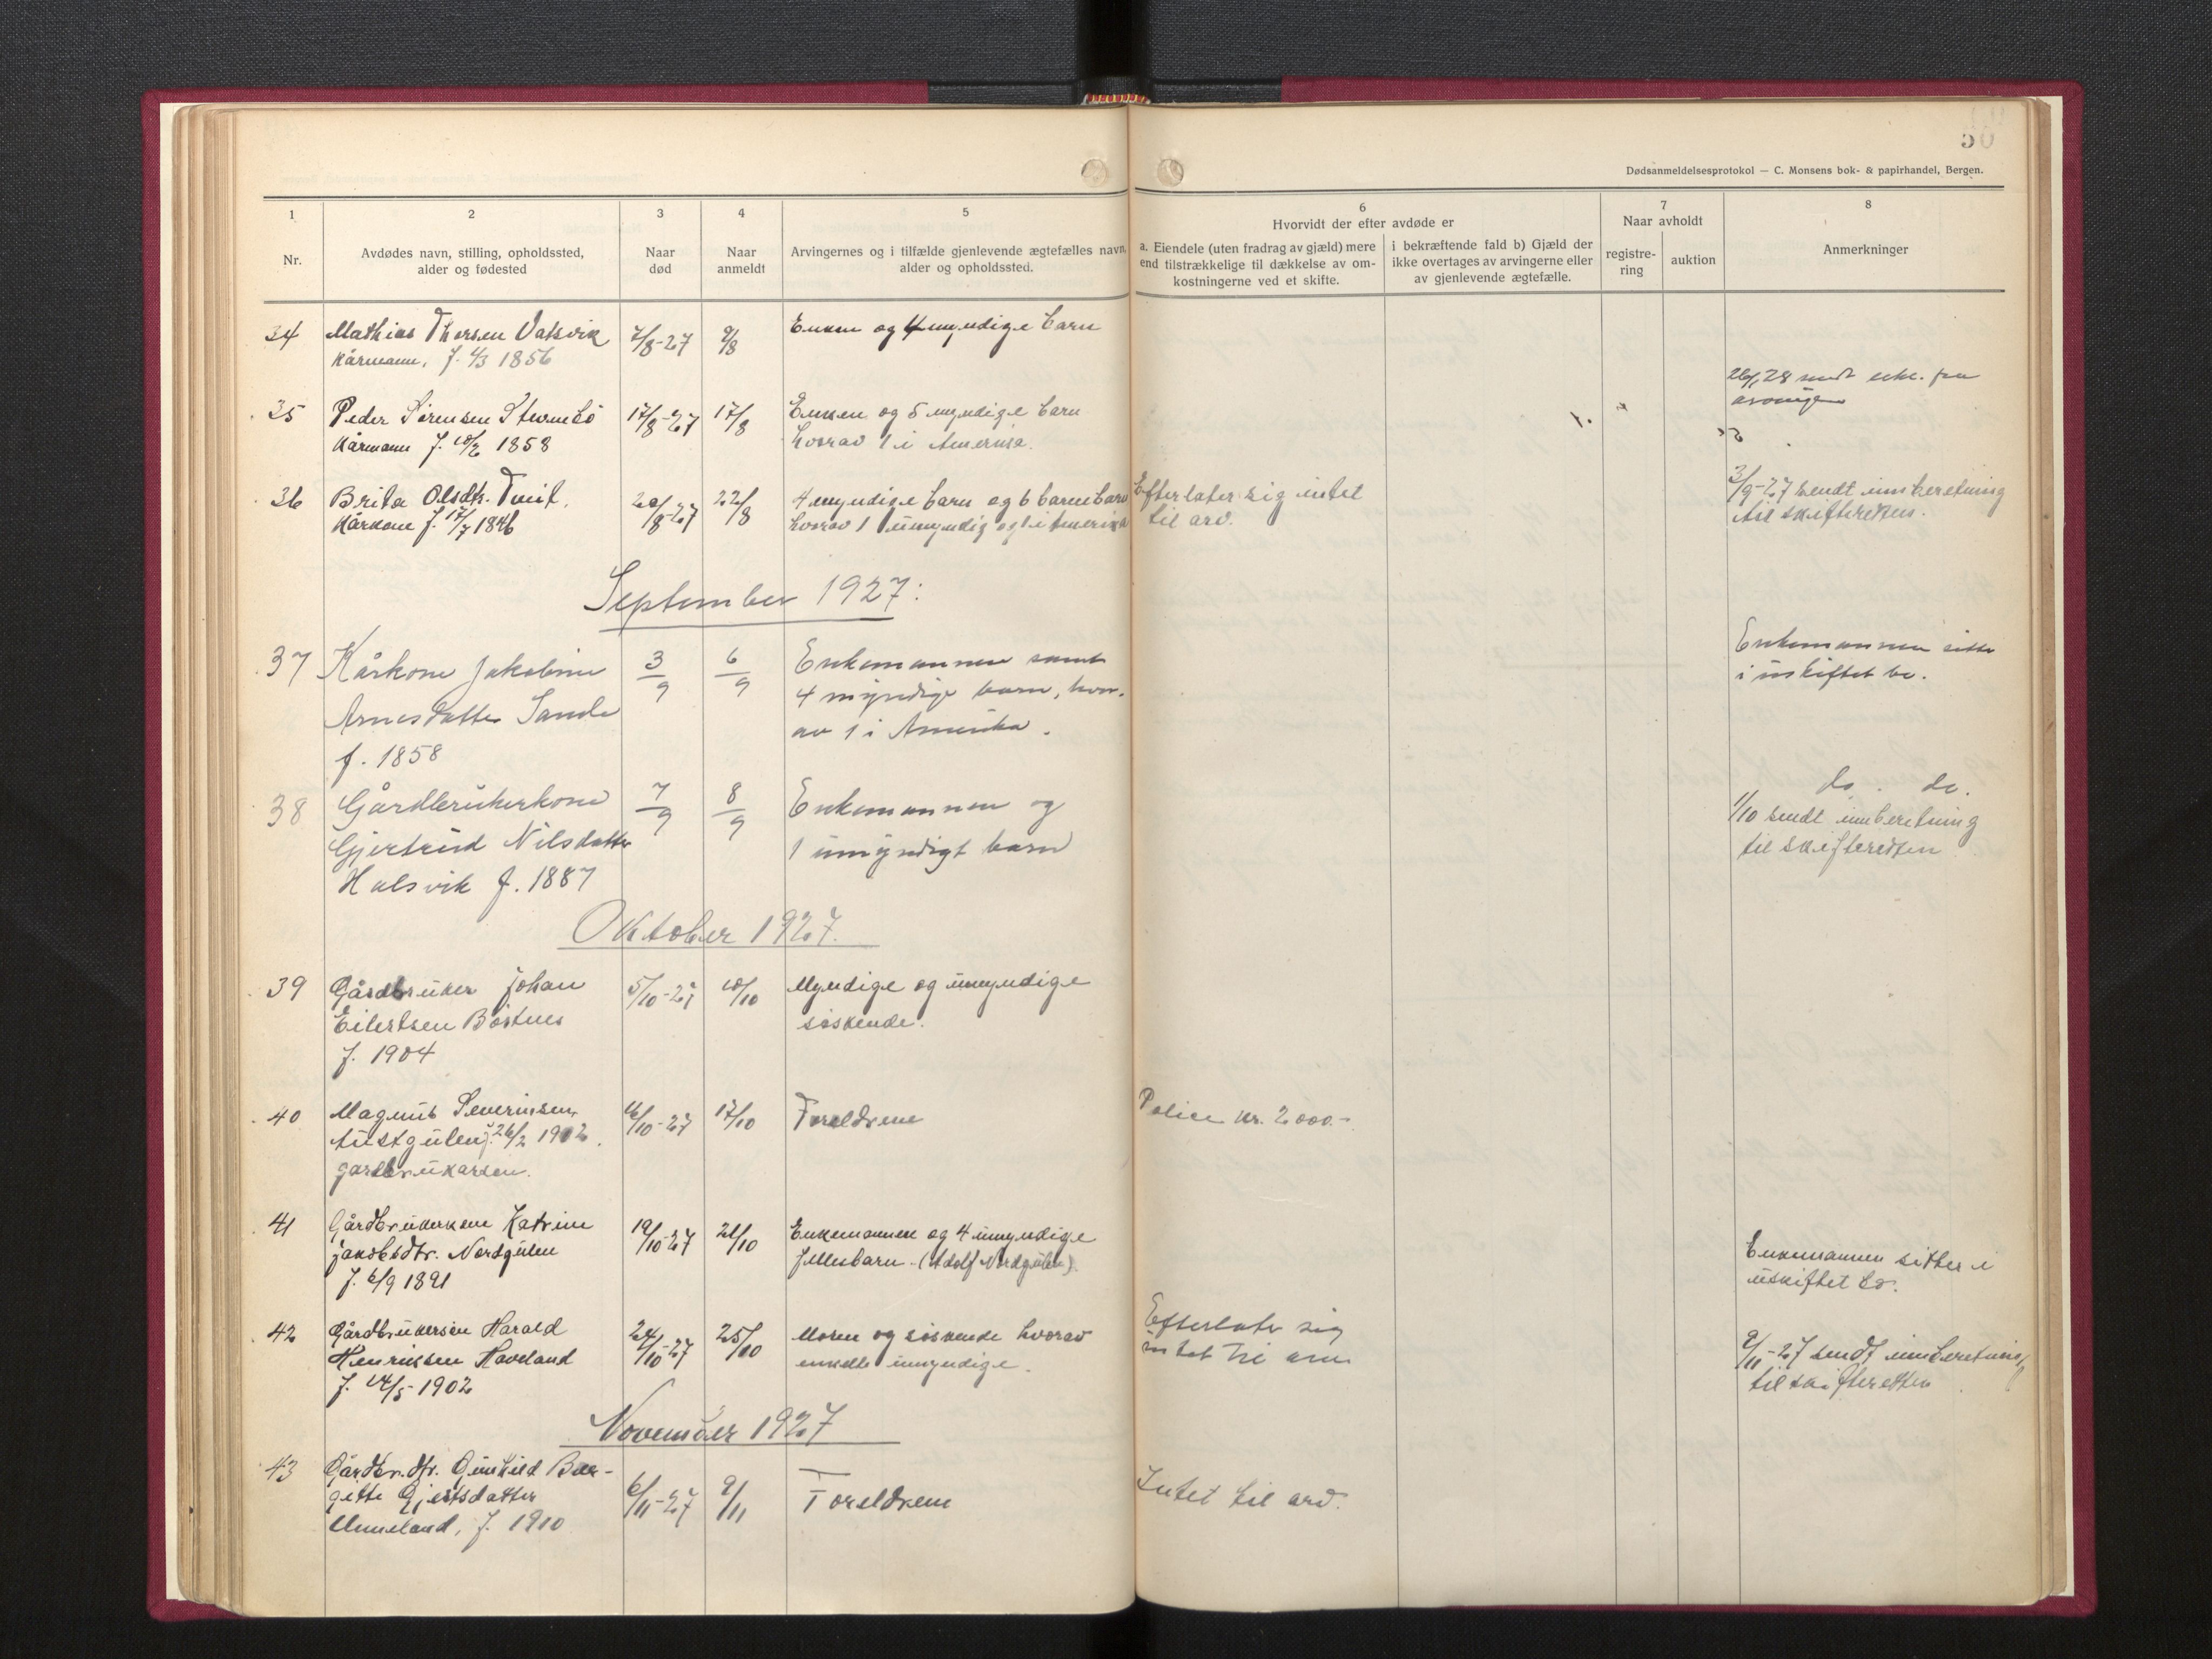 50
Dødsanmeldelsesprotokol — C. Monsens bok- & papirhandel, Bergen.
1
Nr.
2
Avdødes navn, stilling, opholdssted,
alder og fødested
3
Naar
død
4
Naar
anmeldt
5
Arvingernes og i tilfælde gjenlevende ægtefælles navn,
alder og opholdssted.
6
Hvorvidt der efter avdøde er
a. Eiendele (uten fradrag av gjæld) mere
end tilstrækkelige til dækkelse av om-
kostningerne ved et skifte.
i bekræftende fald b) Gjæld der
ikke overtages av arvingerne eller
av gjenlevende ægtefælle.
7
Naar avholdt
registre-
ring
auktion
8
Anmerkninger
34 Mathias Thorsen Vatsvik 7/8-27 9/8 Enken og 4 myndige barn
Kårmann, f. 4/3 1856
35 Peder Sørensen 17/8-27 17/8 Enken og 5 myndige barn
Kårmann f. 10/2 1858 hvorav 1 i Amerika.
36 Brita Olsdtr. Tveit. 20/8-27 22/8 4 myndige barn og 6 barnebarn Efterlater sig intet 3/9-27 sendt innberetning
Kårkone f. 17/7 1846 hvorav 1 umyndig og 1 i Amerika til arv. til skifteretten.
September 1927:
37 Kårkone Jakobine 3/9 6/9 Enkemannen samt Enkemannen sitter
Arnesdatter Sande 4 myndige barn, hvor- i uskiftet bo.
f. 1858 av 1 i Amerika.
38 Gårdbrukerkone 7/9 8/9 Enkemannen og do. do.
Gjertrud Nilsdatter 1 umyndigt barn 1/10 sendt innberetning
Halsvik f. 1887 til skifteretten
Oktober 1927.
39 Gårdbruker Johan 5/10-27 10/10 Myndige og umyndige
Eilertsen Børtnes søskende.
f. 1904
40 Magnus Severinsen 16/10-27 17/10 Foreldrene Police kr. 2000.-
Austgulen f. 26/2 1902.
gardbrukarsen.
41 Gårdbrukerkone Katrine 19/10-27 21/10 Enkemannen og 4 umyndige Enkemannen sitter i
Jakobsdtr. Nordgulen fellesbarn. (Adolf Nordgulen). uskiftet bo.
f. 6/9 1891
42 Gårdbrukersøn Harald 24/10-27 25/10 Moren og søskende hvorav Efterlater sig 9/11-27 sendt innberetning
Henriksen Haveland enkelte umyndige. intet til arv til skifteretten
f. 14/5-1902
November 1927
43 Gårdbr.dtr. Gunhild Bør- 6/11-27 9/11 Foreldrene Intet til arv.
gitte Gjertsdatter
Unneland, f. 1910